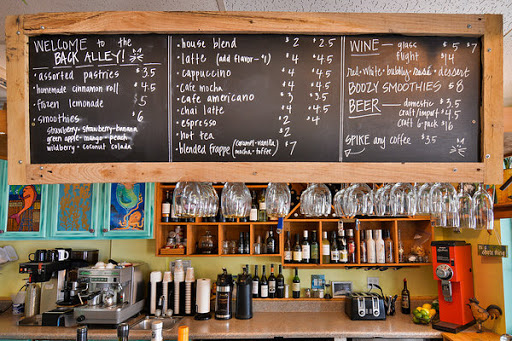 WELCOME to the
BACK ALLEY!
assorted pastries $3.5
homemade cinnamon roll $4.5
frozen lemonade $5
smoothies $6
strawberry · strawberry-banana
green apple · mango · peach
wildberry · coconut colada
house blend $2 $2.5
latte (add flavor -$1) $4 $4.5
cappuccino $4 $4.5
cafe mocha $4 $4.5
cafe americano $3 $3.5
chai latte $4 $4.5
espresso $2
hot tea $2
blended frappe (caramel-vanilla $7
mocha-toffee)
WINE - glass $5 $7
flight $14
red · white · bubbly · rosé · dessert
BOOZY SMOOTHIES $8
BEER - domestic $3.5
craft/import $4.5
craft 6-pack $16
SPIKE any coffee $3.5